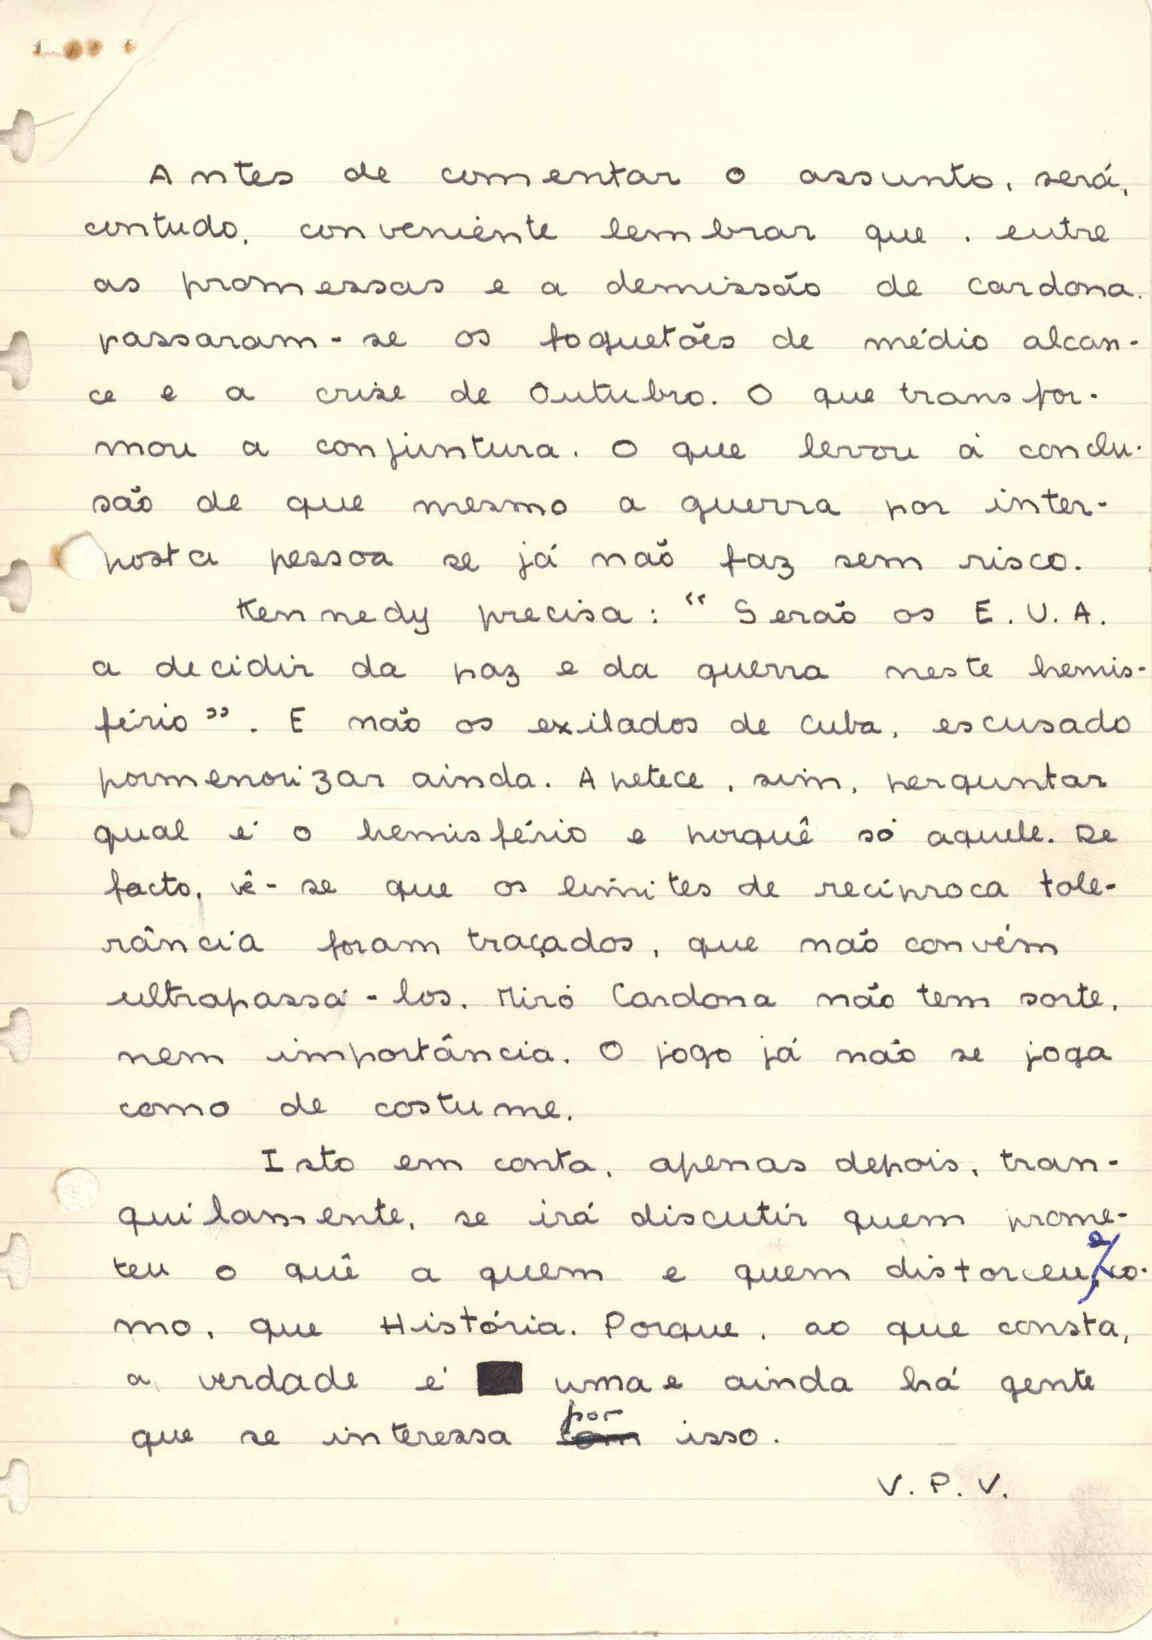 Antes de comentar o assunto, será,
contudo, conveniente lembrar que, entre
as promessas e a demissão de Cardona,
passaram-se os foguetões de médio alcan-
ce e a crise de Outubro. O que transfor-
mou a conjuntura. O que levou à conclu-
são de que mesmo a guerra por inter-
posta pessoa se já não faz sem risco.
Kennedy precisa: "Serão os E.U.A.
a decidir da paz e da guerra neste hemis-
fério". E não os exilados de Cuba, escusado
pormenorizar ainda. Apetece, sim, perguntar
qual é o hemisfério e porquê só aquele. De
facto, vê-se que os limites de recíproca tole-
rância foram traçados, que não convém
ultrapassá-los. Miró Cardona não tem sorte,
nem importância. O jogo já não se joga
como de costume.
Isto em conta, apenas depois, tran-
quilamente, se irá discutir quem prome-
teu o quê a quem e quem distorceu, co-
mo, que História. Porque, ao que consta,
a verdade é uma e ainda há gente
que se interessa por isso.
V. P. V.